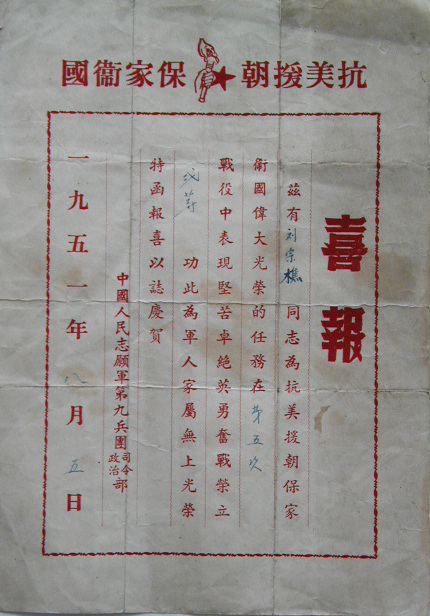 抗美援朝 保家衞國
喜報
茲有刘樵同志為抗美援朝保家
衛國偉大光榮的任務在第五次
戰役中表現堅苦卓絕英勇奮戰榮立
等功此為軍人家屬無上光榮
特函報喜以誌慶賀
中國人民志願軍第九兵團司令政治部
一九五一年八月五日